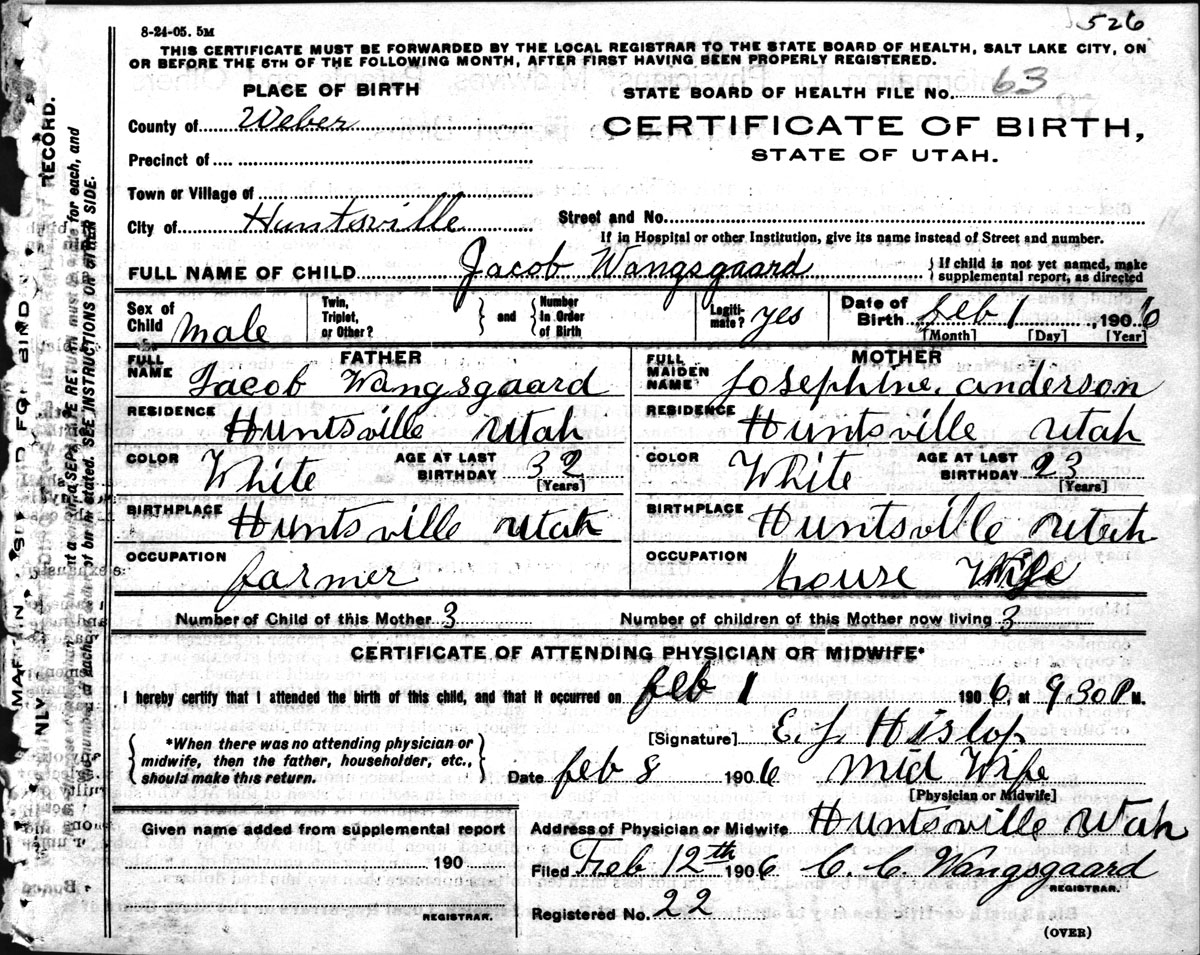 526
8-24-05. 5M
THIS CERTIFICATE MUST BE FORWARDED BY THE LOCAL REGISTRAR TO THE STATE BOARD OF HEALTH, SALT LAKE CITY, ON
OR BEFORE THE 5TH OF THE FOLLOWING MONTH, AFTER FIRST HAVING BEEN PROPERLY REGISTERED.
PLACE OF BIRTH
STATE BOARD OF HEALTH FILE No. 63
County of Weber
CERTIFICATE OF BIRTH,
STATE OF UTAH.
Precinct of
Town or Village of
City of Huntsville
Street and No.
If in Hospital or other Institution, give its name instead of Street and number.
FULL NAME OF CHILD Jacob Wangsgaard
{If child is not yet named, make
supplemental report, as directed
Sex of Child male
Twin, Triplet, or Other? } and { Number in Order of Birth
Legiti-mate? yes
Date of Birth feb 1, 1906
[Month] [Day] [Year]
FATHER
MOTHER
FULL NAME Jacob Wangsgaard
FULL MAIDEN NAME Josephine. anderson
RESIDENCE Huntsville Utah
RESIDENCE Huntsville Utah
COLOR White AGE AT LAST BIRTHDAY 32 [Years]
COLOR White AGE AT LAST BIRTHDAY 23 [Years]
BIRTHPLACE Huntsville Utah
BIRTHPLACE Huntsville Utah
OCCUPATION farmer
OCCUPATION house Wife
Number of Child of this Mother 3
Number of children of this Mother now living 3
CERTIFICATE OF ATTENDING PHYSICIAN OR MIDWIFE*
I hereby certify that I attended the birth of this child, and that it occurred on feb 1 1906, at 9.30 P M.
{*When there was no attending physician or
midwife, then the father, householder, etc.,
should make this return.}
[Signature] E. J. Hislop
Date feb 8 1906 Mid Wife
[Physician or Midwife]
Given name added from supplemental report
190
REGISTRAR.
Address of Physician or Midwife Huntsville Utah
Filed Feb 12th 1906 C. C. Wangsgaard
REGISTRAR.
Registered No. 22
(OVER)
RECORD.
SEE INSTRUCTIONS ON OTHER SIDE.